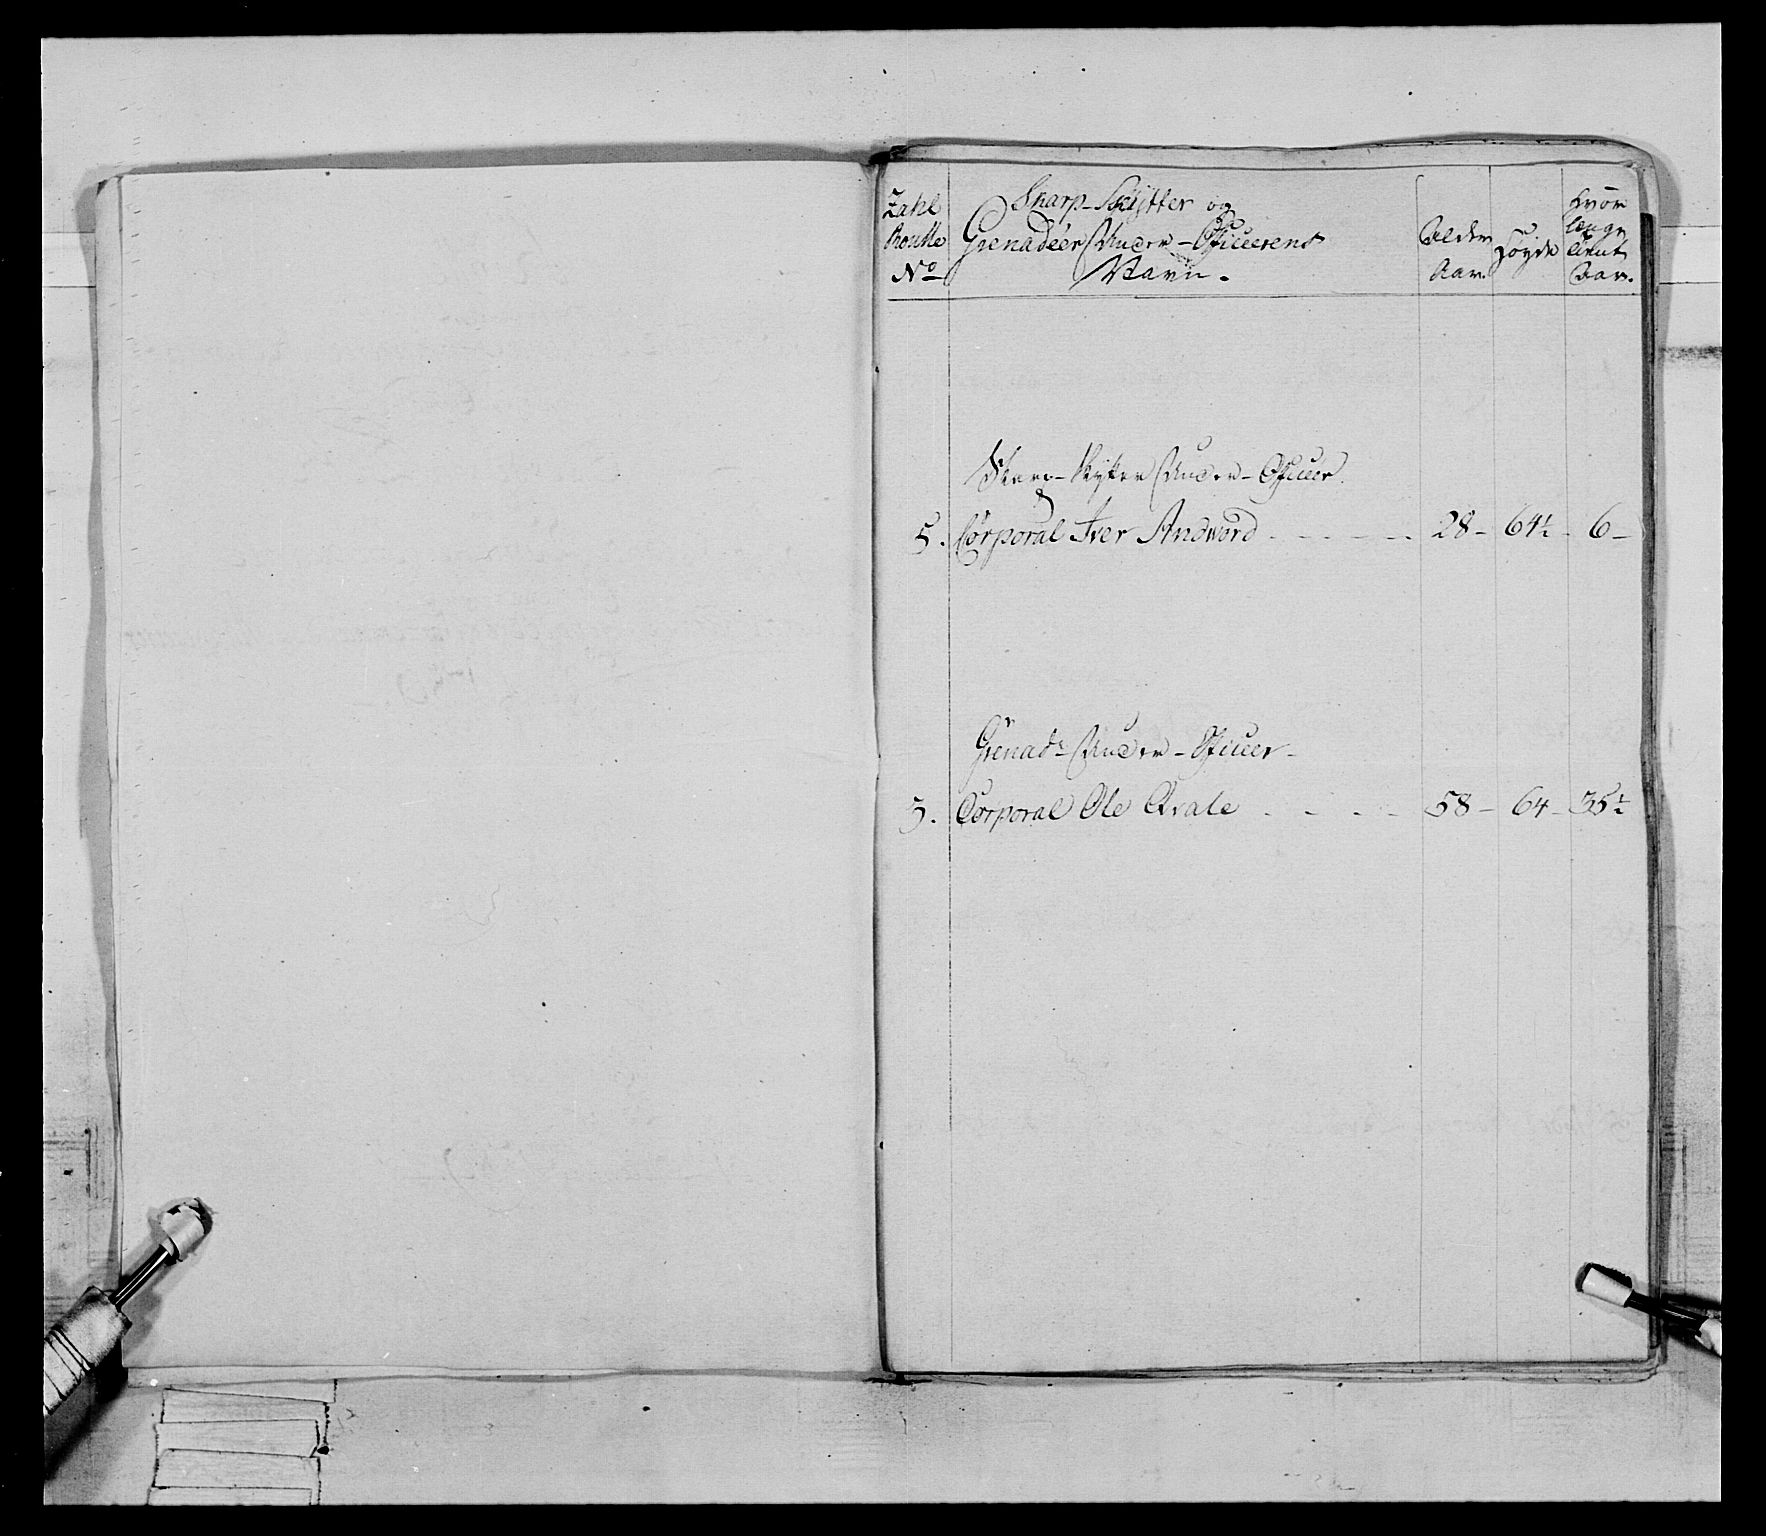 Zahl Roulle No
Skarp-Skÿtter og
Grenadéer Under-Officerens
Navn.
Alder Aar.
Høyde
Hvor længe tient Aar.
Skarp-Skÿtter Under-Officer
5. Corporal Iver Andvord 28 - 64½ - 6 -
Grenadr Under-Officer -
3. Corporal Ole Qvale 58 - 64 - 35½